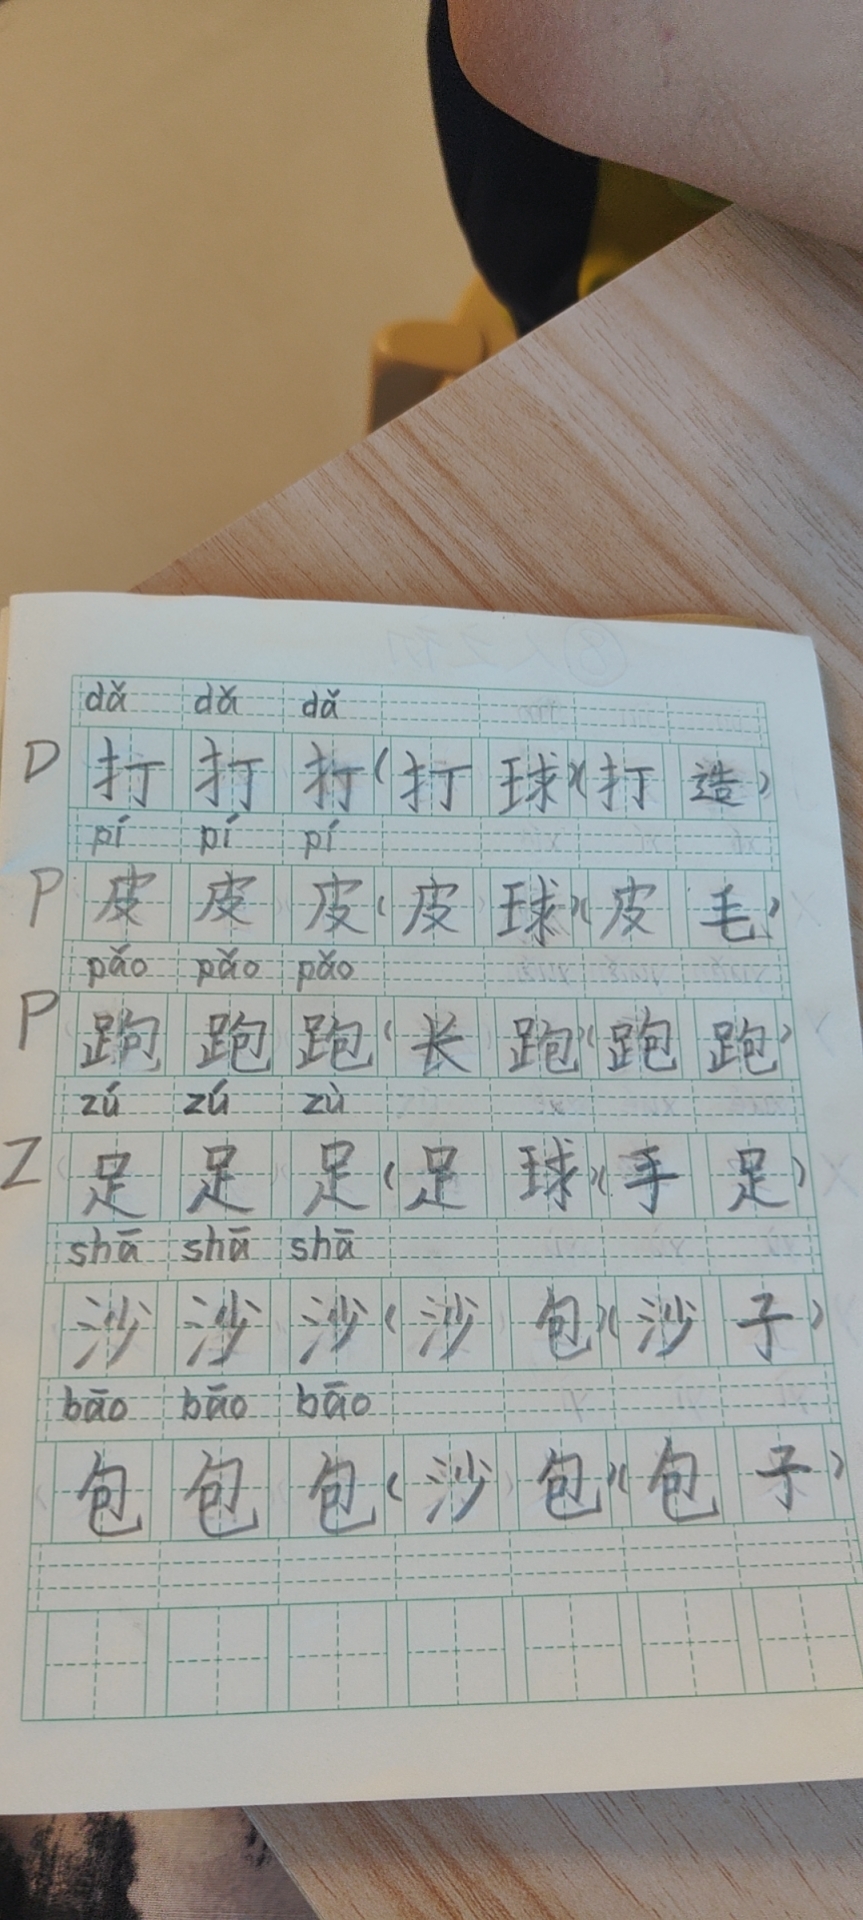 dǎ dǎ dǎ
D 打 打 打(打 球)(打 造)
pí pí pí
P 皮 皮 皮(皮 球)(皮 毛)
pǎo pǎo pǎo
P 跑 跑 跑(长 跑)(跑 跑)
zú zú zù
Z 足 足 足(足 球)(手 足)
shā shā shā
沙 沙 沙(沙 包)(沙 子)
bāo bāo bāo
包 包 包(沙 包)(包 子)